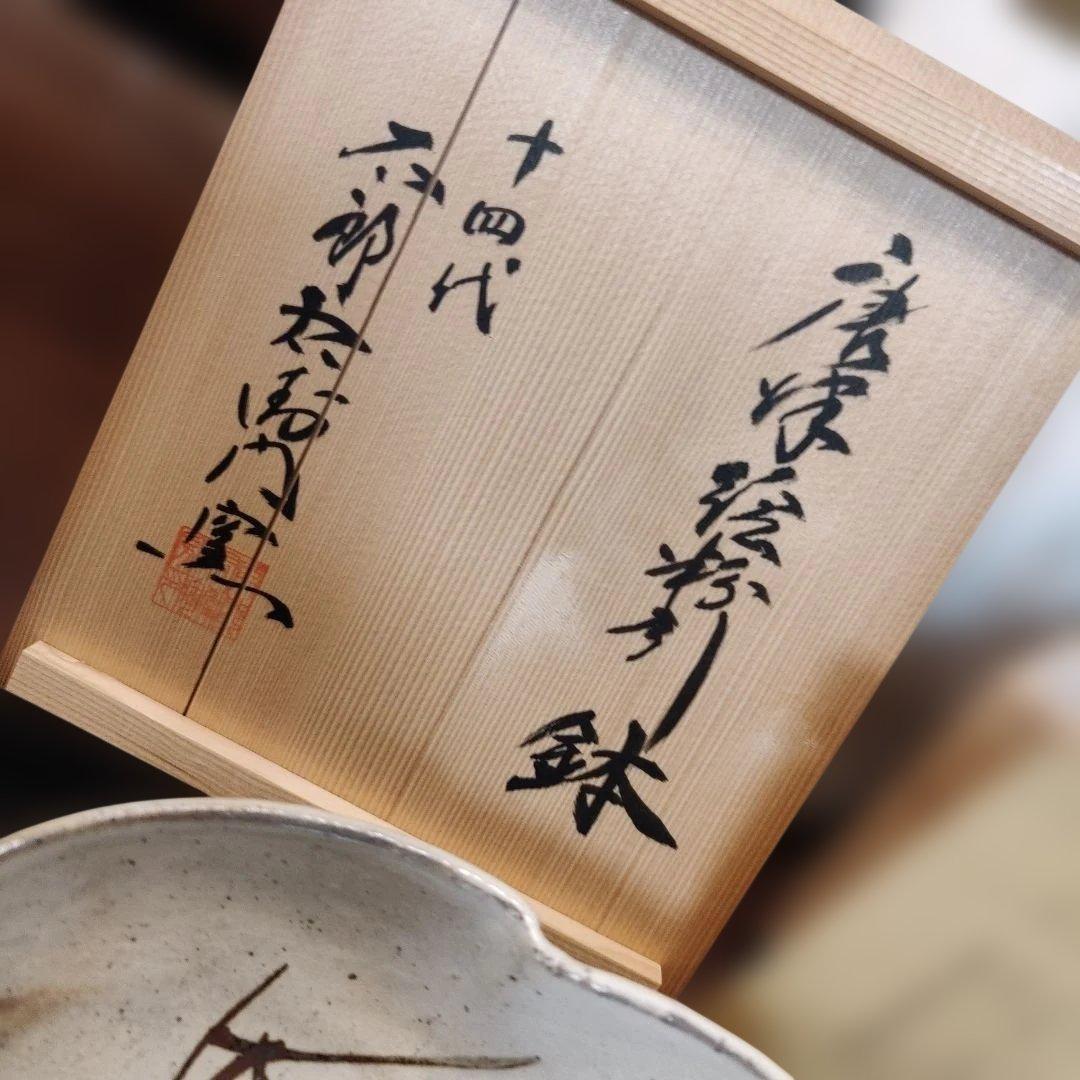 唐津絵粉引 鉢
十四代
太郎右衛門窯